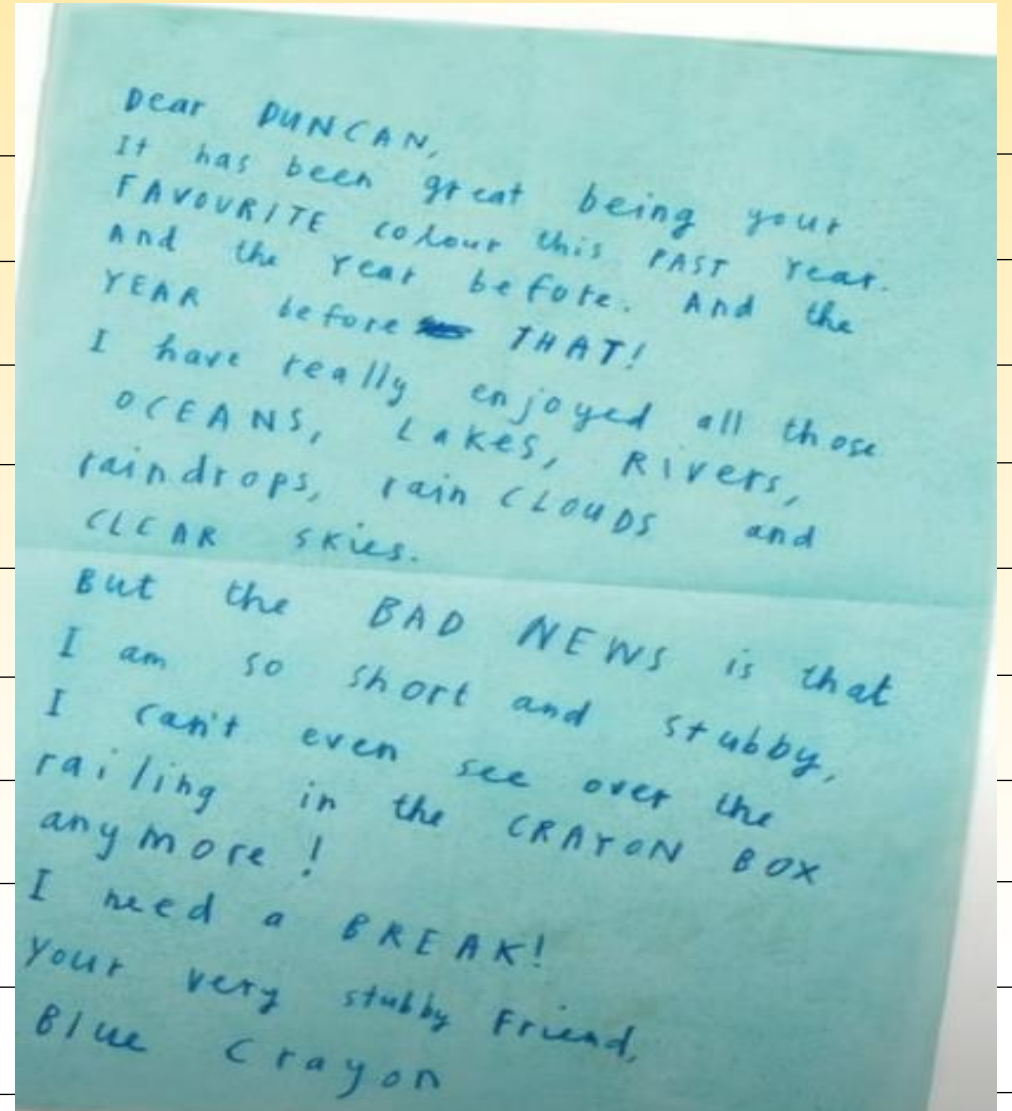 Dear DUNCAN,
It has been great being your
FAVOURITE colour this PAST Year.
And the Year before. And the
YEAR before THAT!
I have really enjoyed all those
OCEANS, Lakes, Rivers,
raindrops, rain CLOUDS and
CLEAR skies.
But the BAD NEWS is that
I am so short and stubby,
I can't even see over the
railing in the CRAYON BOX
anymore!
I need a BREAK!
Your very stubby Friend,
Blue Crayon